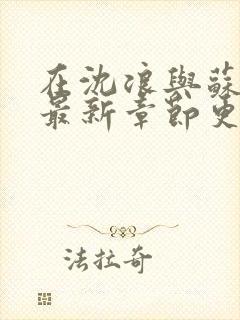 在沈浪與蘇
最新章節更
法拉奇